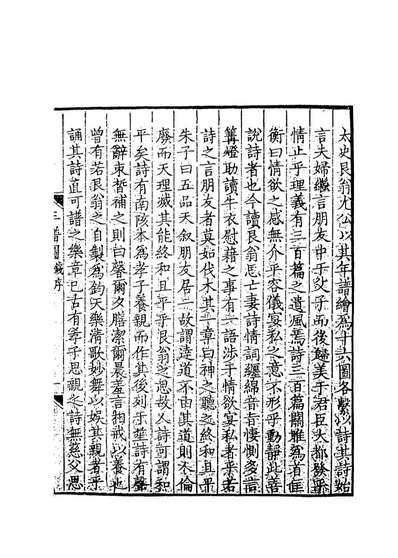 太史艮翁尤公以其年譜繪為十六圖各繫以詩其詩始
言夫婦繼言朋友中乎父子而後歸美乎君臣大都發乎
情止乎理義有三百篇之遺風焉詩三百篇關雎為首匡
衡曰情欲之感無介乎容儀宴私之意不形乎動靜此善
說詩者也今讀艮翁亡妻詩情詞纏綿音音悽惻多
篝燈助讀牛衣慰藉之事有一語涉乎情欲宴私者乎若
詩之言朋友者莫始伐木其一章曰神之聽之終和且平
朱子曰五品天叙朋友居一故謂達道不由其道則不倫
廢而天理滅其能終和且平乎艮翁之思故人詩可謂和
平矣詩有南陔本為孝子養親而作其後列乎笙詩有聲
無辭束晳補之則曰馨爾夕膳潔爾晨羞言相戒以養也
曾有若艮翁之自製為鈞天樂清歌妙舞以娛其親者乎
誦其詩直可譜之樂章已古有孝子思親之詩無慈父思
譜圖序